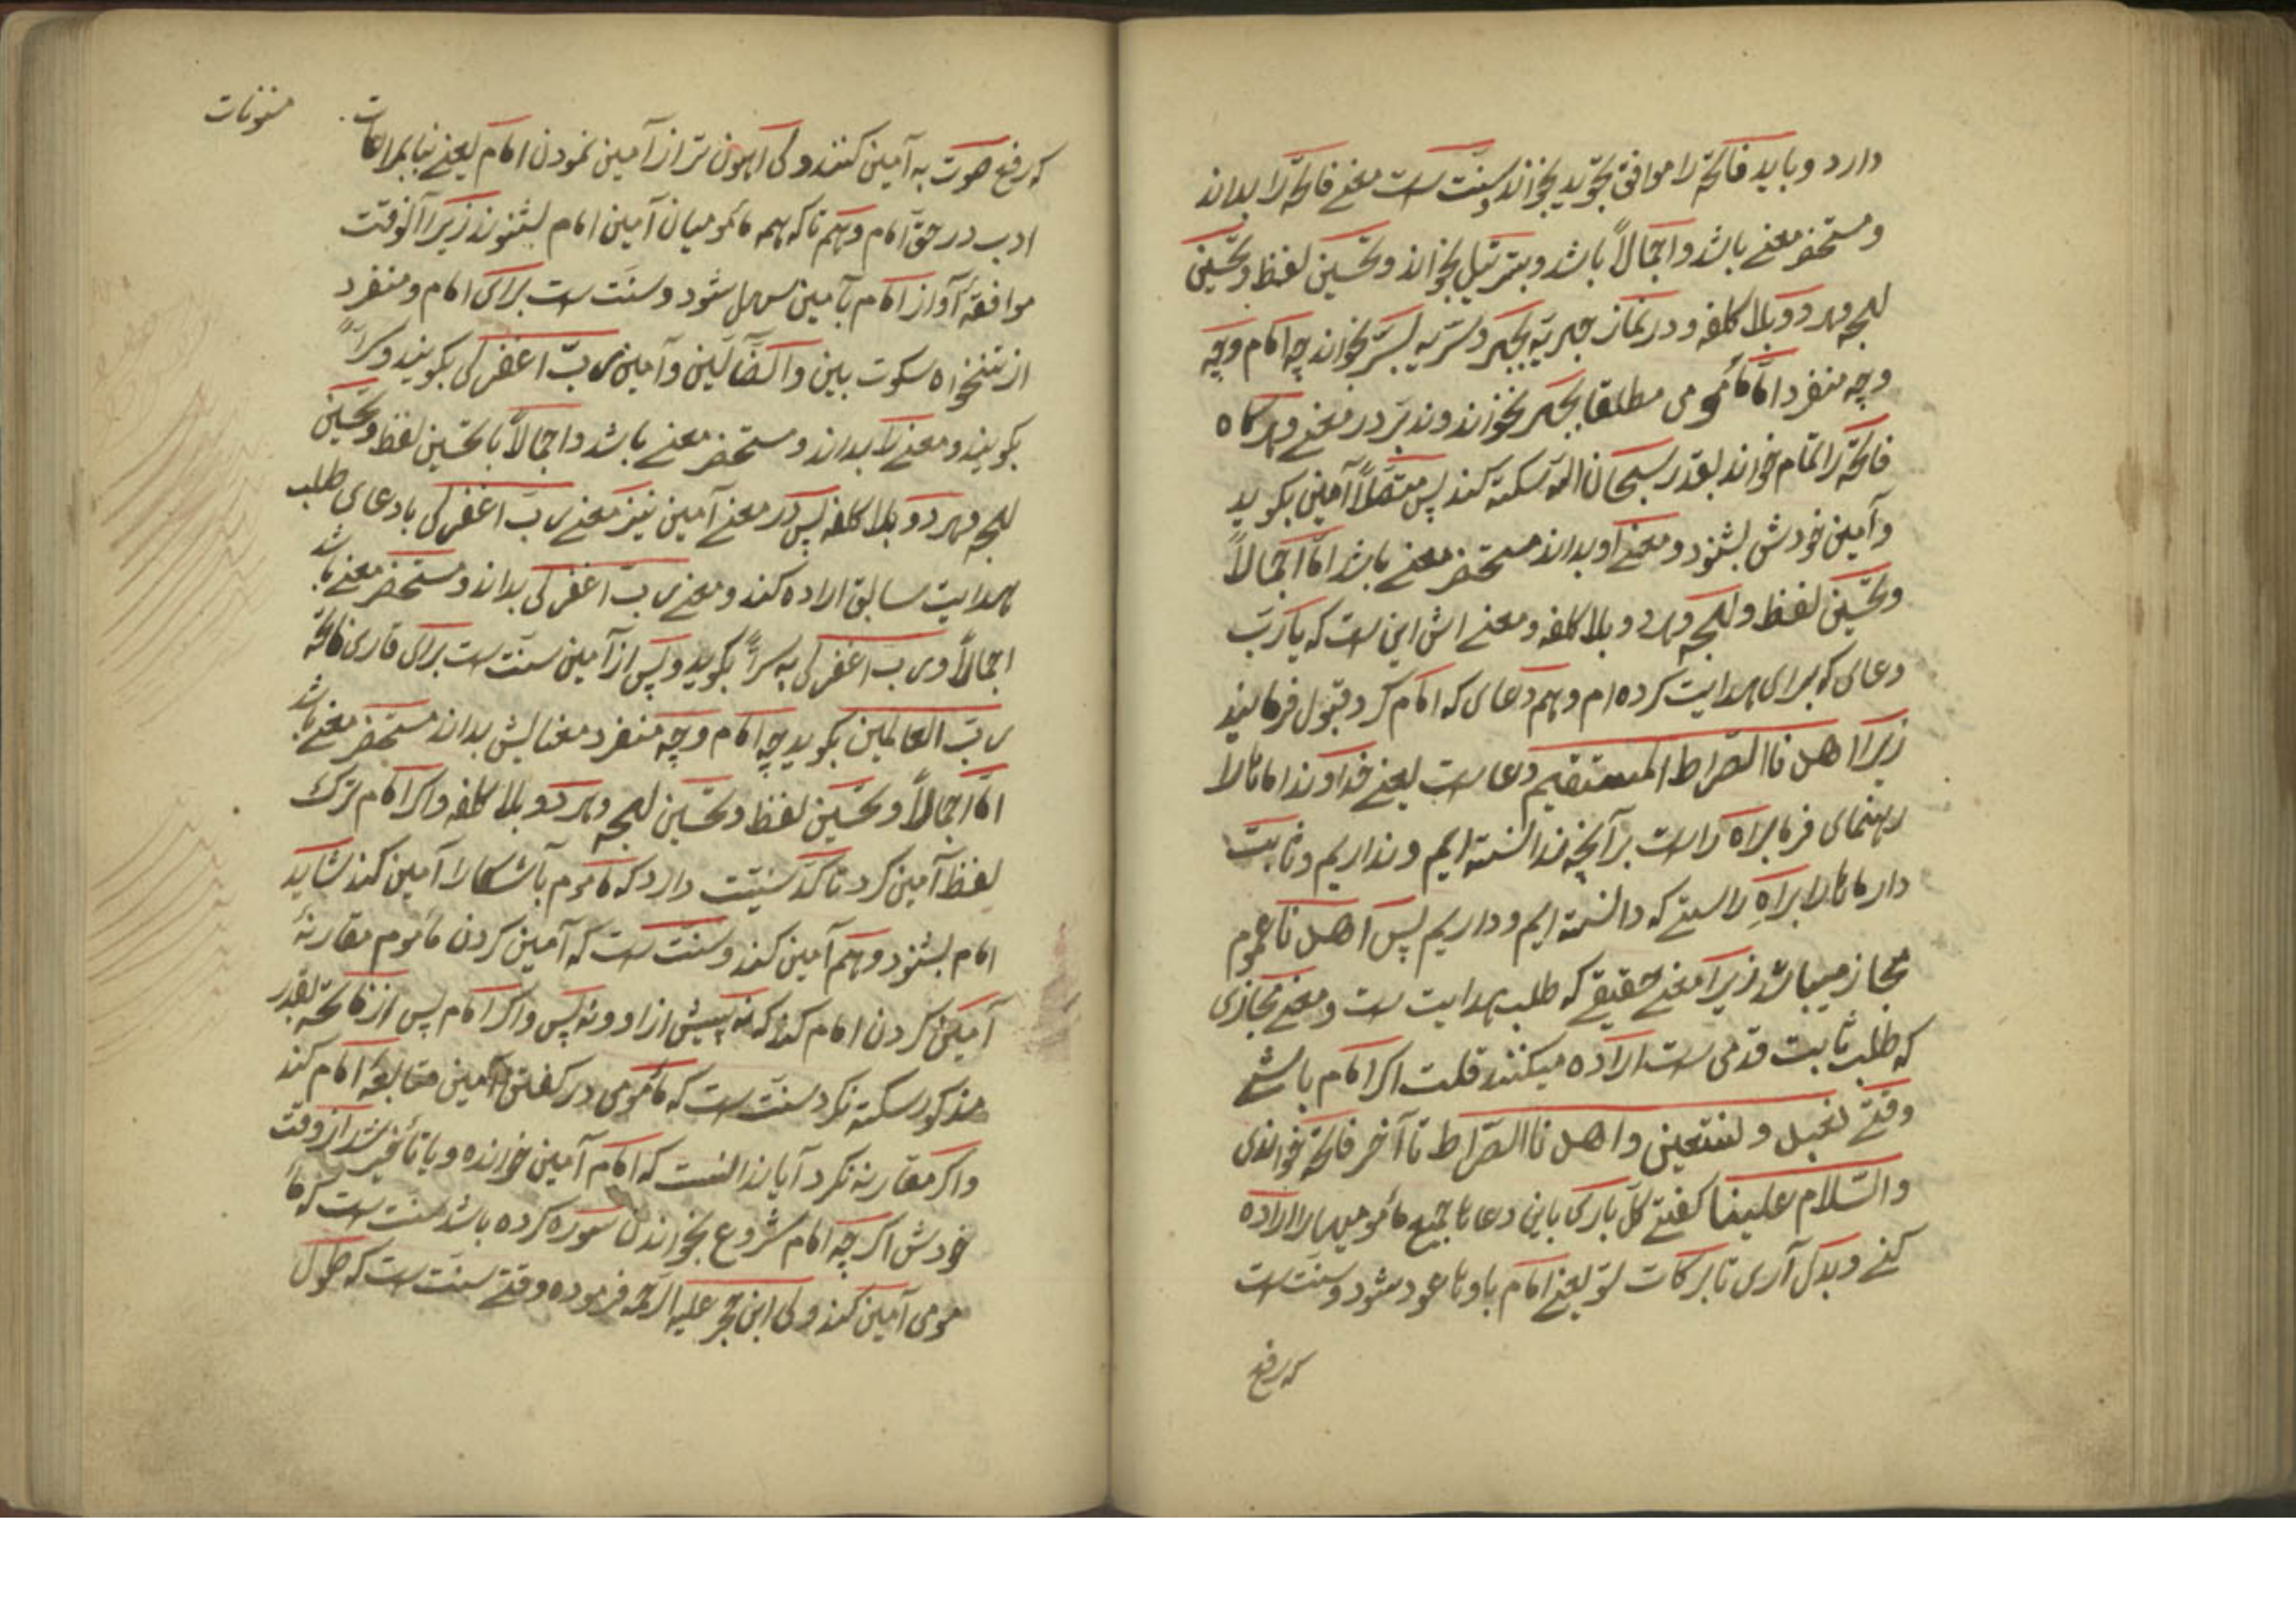 دارد و باید فاتحه را موافق تجوید بخواند و سنّت ست معنے فاتحه را بداند
و مستحضر معنے باشد و اجمالاً باشد و بترتیل بخواند و تحسین لفظ و تحسین
لهجه و هر دو بلا کلفه و در نماز جهریّه بجهر و سرّیه بسرّ بخواند چه امام و چه
و چه منفرد امّا مأمومی مطلقا بجهر نخواند و تدبّر در معنے و هرکاه
فاتحه را تمام خواند بقدر سبحان الله سکته کند پس متصّلاً آمین بکوید
و آمین خودش بشنود و معنے او بداند مستحضر معنے باشد امّا اجمالاً
و تحسین لفظ و لهجه و هر دو بلا کلفه و معنے اش این ست که یا ربّ
دعای که برای هدایت کرده ام و هم دعای که امام کرد قبول فرمایید
زیرا اهدنا الصّراط المستقیم دعا ست یعنے خداوندا مایان را
رهنمای فرما براه راست بر آنچه ندانسته ایم و نداریم و ثابت
دار مایان را براهِ راستے که دانسته ایم و داریم پس اهدنا عموم
مجاز میباشد زیرا معنے حقیقے که طلب هدایت ست و معنے مجازی
که طلب ثابت قدمی ست اراده میکنند قلت اکر امام باشے
وقتے نعبد و نستعین و اهدنا الصّراط تا آخر فاتحه خواندی
و السّلام علینا کفتے کلّ باری باین دعاها جمیع مأمومیها را اراده
کنے و بدل آری تا برکات تو یعنے امام باوها عود شود و سنّت ست
که رفع
مسنونات
که رفع صوت به آمین کنند ولی اهون تر از آمین نمودن امام یعنے بنا بمراعات
ادب در حقّ امام و هم تا که همه مأمومیان آمین امام بشنوند زیرا آنوقت
موافقهٔ آواز امام بآمین سهل شود و سنّت ست برای امام و منفرد
از تنخواه سکوت بین و الضّآلّین و آمین ربّ اغفر لی بکویند و سرّاً
بکویند و معنے را بداند و مستحضر معنے باشد و اجمالاً با تحسین لفظ و تحسین
لهجه و هر دو بلا کلفه پس در معنے آمین نیز معنے ربّ اغفر لی با دعای طلب
هدایت سابق اراده کند و معنے ربّ اغفر لی بداند و مستحضر معنے باشد
اجمالاً و ربّ اغفر لی به سرّاً بکوید و پس از آمین سنّت ست برای قاری فاتحه
ربّ العالمین بکوید چه امام و چه منفرد معنایش بداند مستحضر معنے باشد
امّا اجمالاً و تحسین لفظ و تحسین لهجه و هر دو بلا کلفه و اکر امام ترک
لفظ آمین کرد تاکّد سنّیّت دارد که مأموم بآشکارا آمین کند شاید
امام بشنود و هم آمین کند و سنّت ست که آمین کردن مأموم مقارنهٔ
آمین کردن امام کند که نه پیش از او و نه پس و اکر امام پس از فاتحه بقدر
مذکور سکته نکرد سنّت ست که مأمومی در کفتن آمین متابعهٔ امام کند
و اکر مقارنه نکرد آیا ندانست که امام آمین خوانده و یا تأخیر شد از وقت
خودش اکرچه امام شروع بخواندن سوره کرده باشد سنّت ست که مأ
مومی آمین کند ولی ابن حجر علیه الرّحمه فرموده وقتے سنّت ست که طول